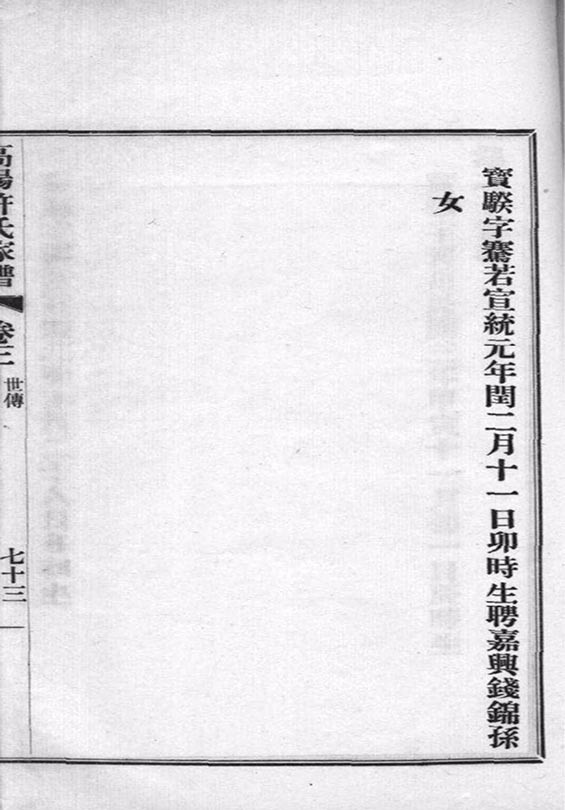 寳騤字騫若宣統元年閏二月十一日卯時生聘嘉興錢錦孫
女
高陽許氏家譜
卷三
世傳
七十三